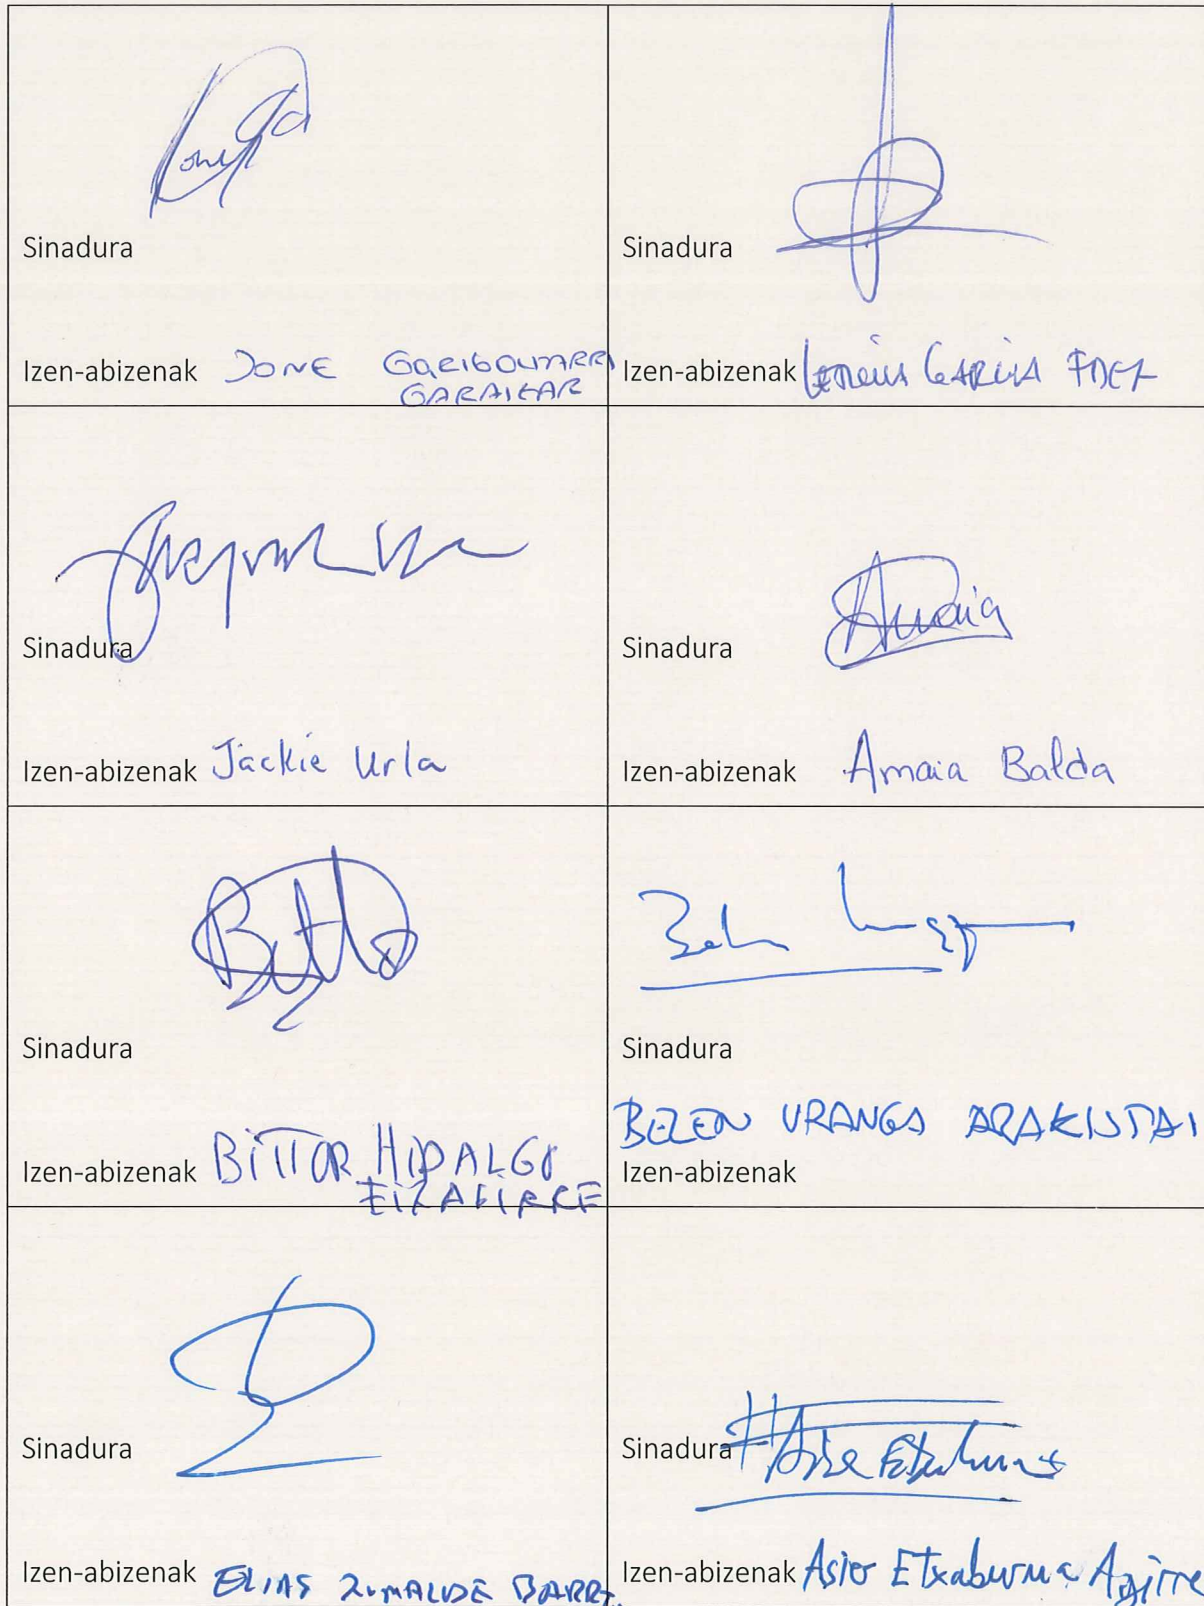 Sinadura
Izen-abizenak JONE
GARAIKAR
Sinadura
Izen-abizenak GARCIA FDEZ
Sinadura
Izen-abizenak Jackie Urla
Amaia
Sinadura
Izen-abizenak Amaia Balda
Sinadura
Izen-abizenak BITTOR HIDALGO
EIZAGIRRE
Sinadura
BELEN URANGA ARAKISTAI
Izen-abizenak
Sinadura
Izen-abizenak ELIAS ZUMALDE BARRE
Sinadura
Izen-abizenak Asier Etxaburua Agirre